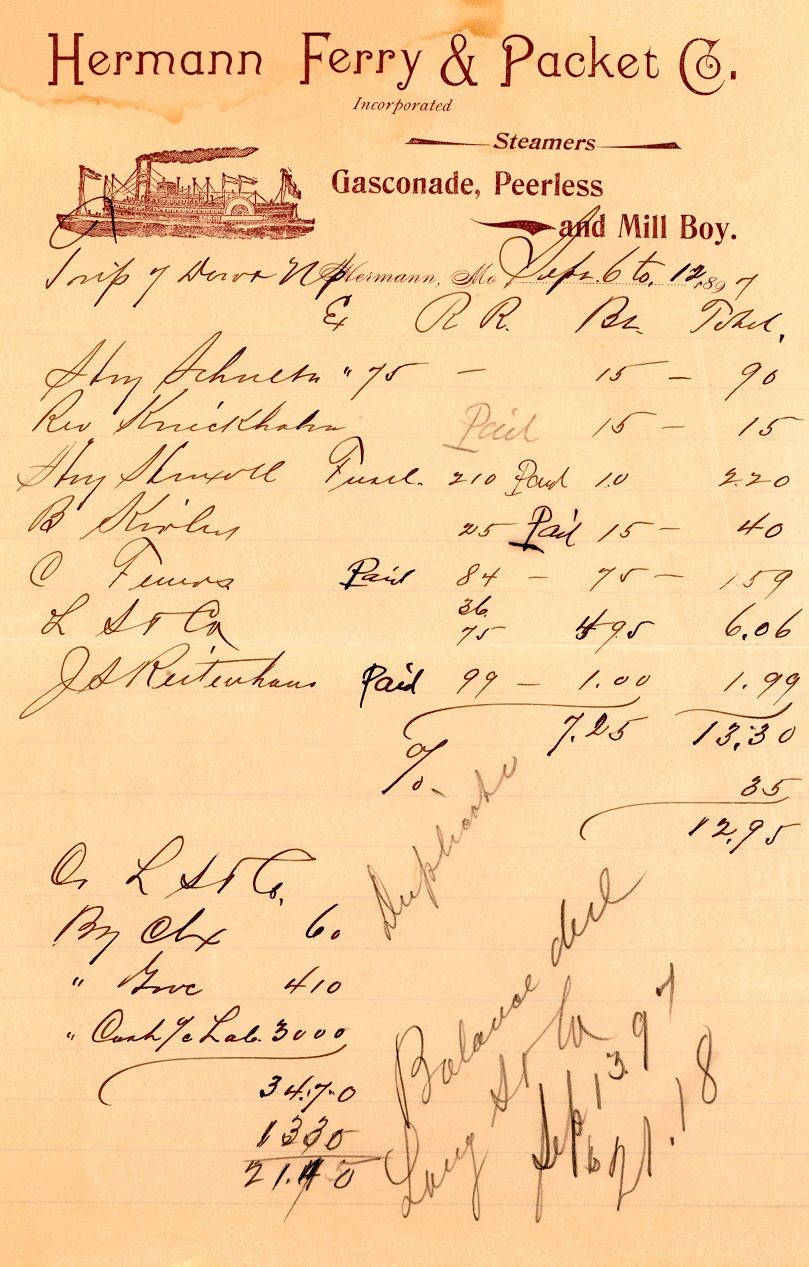 Hermann Ferry & Packet Co.
Incorporated
Steamers
Gasconade, Peerless
and Mill Boy.
Trip of Down Up Hermann, Mo Sept. 6 to. 12, 1897
Ex R R. Bt. Total.
Hry " 75 — 15 — 90
Rev Knickhahn Paid 15 — 15
Hry 210 Paid 10 2.20
B 25 Paid 15 — 40
C Paid 84 — 75 — 159
L S & Co 36 75 4 95 6.06
J S Reitenhaus Paid 99 — 1.00 1.99
7.25 13.30
% 35
12.95
Duplicate
Cr L S & Co.
By Chx 60
" 410
" Cash 3000
34.70
1330
21.
Balance due
Long St Co
Sep 13 97
21.18